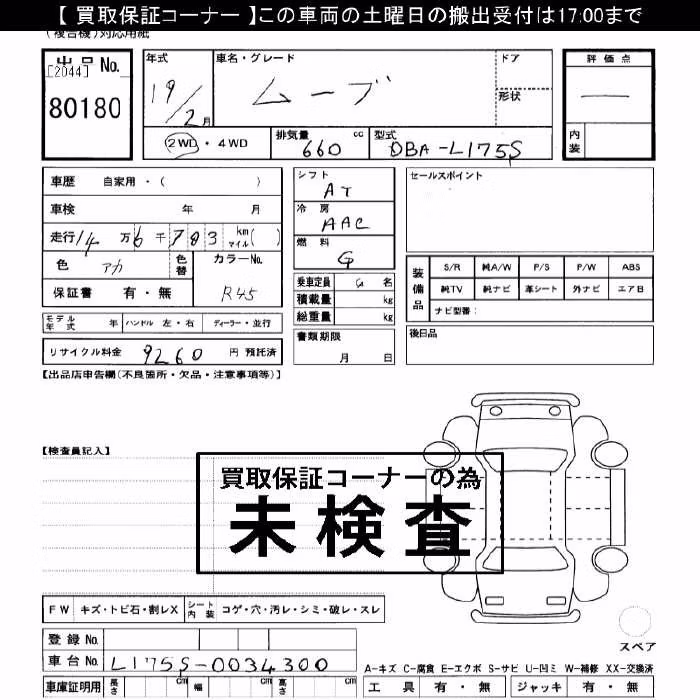 【 買取保証コーナー 】この車両の土曜日の搬出受付は17:00まで
(複合機)対応用紙
出品 No.
[2044]
80180
年式
19/2月
車名・グレード
ムーブ
ドア
形状
評価点
—
内装
2WD ・ 4WD
排気量 660 cc
型式 DBA-L175S
車歴 自家用・( )
車検 年 月
走行 14 万 6 千 783 km マイル( )
色 アカ
色替
カラーNo. R45
保証書 有・無
シフト AT
冷房 AAC
燃料 G
乗車定員 名
積載量 kg
総重量 kg
セールスポイント
装備品
S/R 純A/W P/S P/W ABS
純TV 純ナビ 革シート 外ナビ エアB
ナビ型番:
モデル年式 年 ハンドル 左・右 ディーラー・並行
リサイクル料金 9260 円 預託済
書類期限
月 日
後日品
【出品店申告欄(不良箇所・欠品・注意事項等)】
【検査員記入】
買取保証コーナーの為
未検査
FW キズ・トビ石・割レX シート内装 コゲ・穴・汚レ・シミ・破レ・スレ
登録 No.
車台 No. L175S-0034300
車庫証明用 長さ cm 幅 cm 高さ cm
スペア
A-キズ C-腐食 E-エクボ S-サビ U-凹ミ W-補修 XX-交換済
工具 有・無 ジャッキ 有・無